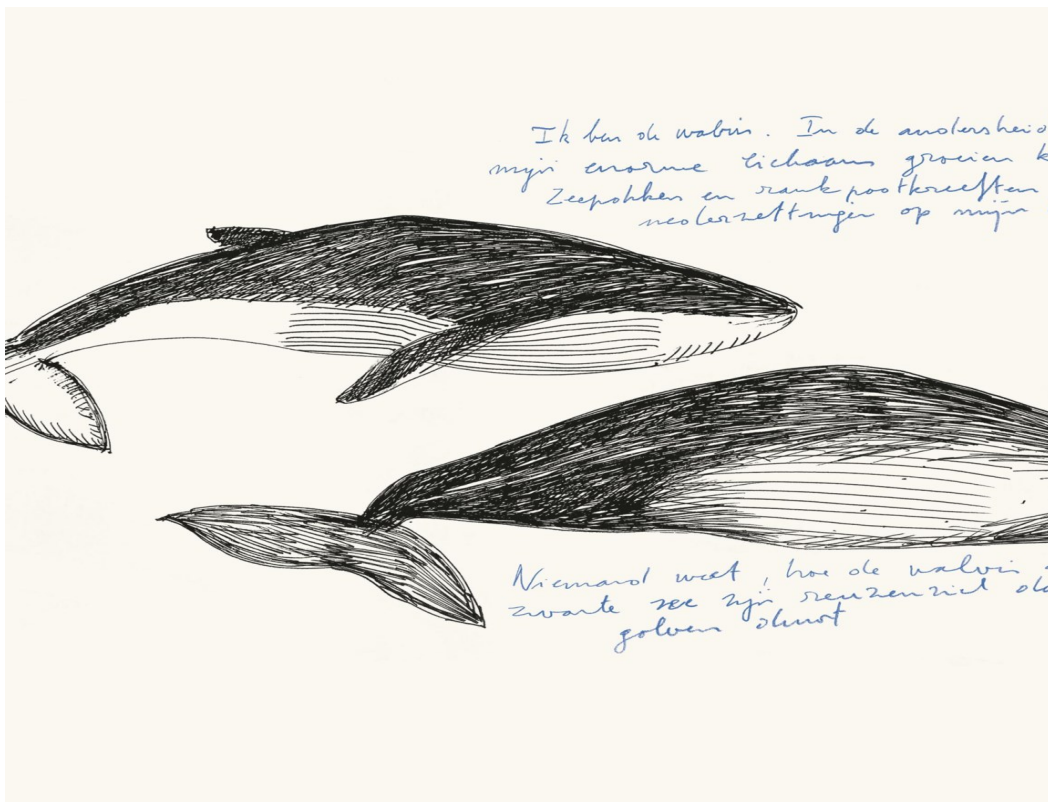 Ik ben de walvis. In de andersheid
mijn enorme lichaam groeien k
Zeepokken en rankpootkreeften
nederzettingen op mijn
Niemand weet, hoe de walvis
zwarte zee zijn reuzenziel do
golven duwt